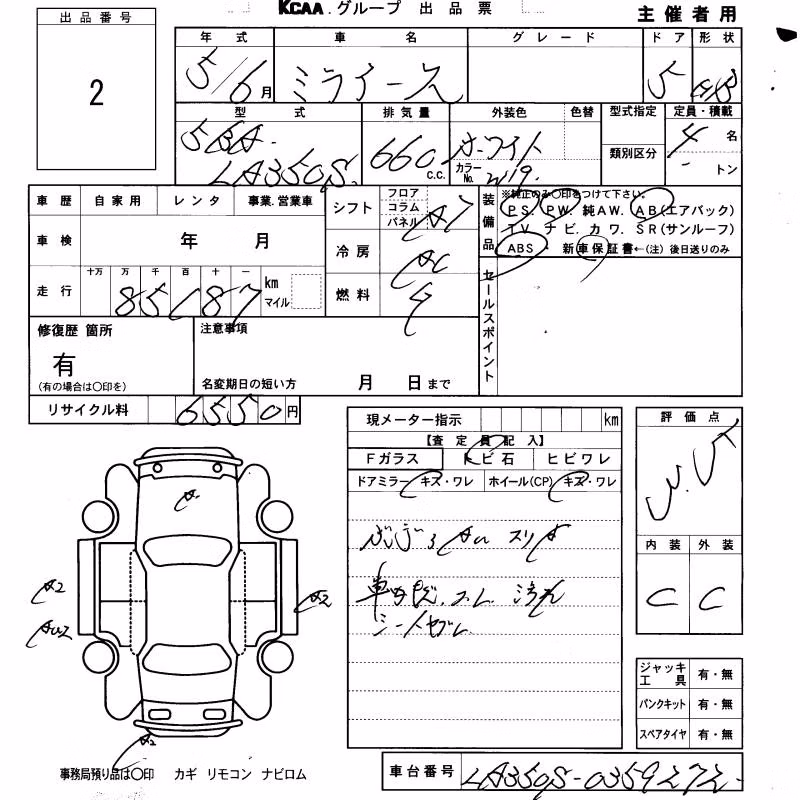 KCAA.グループ 出品票
主催者用
出品番号
2
年式 車名 グレード ドア 形状
5/6月 ミライース 5 HB
型式 排気量 外装色 色替 型式指定 定員・積載
5BA-
LA350S 660 c.c. ホワイト カラーNo. W19 類別区分 4名
- トン
車歴 自家用 レンタ 事業.営業車
車検 年 月
走行 十万 万 千 百 十 一 km マイル
85187
シフト フロア コラム パネル AT
冷房 AC
燃料
装備品
※純正のみ〇印をつけて下さい。
PS. PW. 純AW. AB(エアバック)
TV ナビ. カワ. SR(サンルーフ)
ABS 新車保証書←(注) 後日送りのみ
セールスポイント
修復歴 箇所
有
(有の場合は〇印を)
注意事項
名変期日の短い方 月 日まで
リサイクル料 6550円
現メーター指示 km
【査定員記入】
Fガラス トビ石 ヒビワレ
ドアミラー キズ・ワレ ホイール(CP) キズ・ワレ
スリキ
汚れ
シート
評価点
内装 外装
C C
A
A2
A2
AU2
A2
ジャッキ工具 有・無
パンクキット 有・無
スペアタイヤ 有・無
事務局預り品は〇印 カギ リモコン ナビロム
車台番号 LA350S-0359272